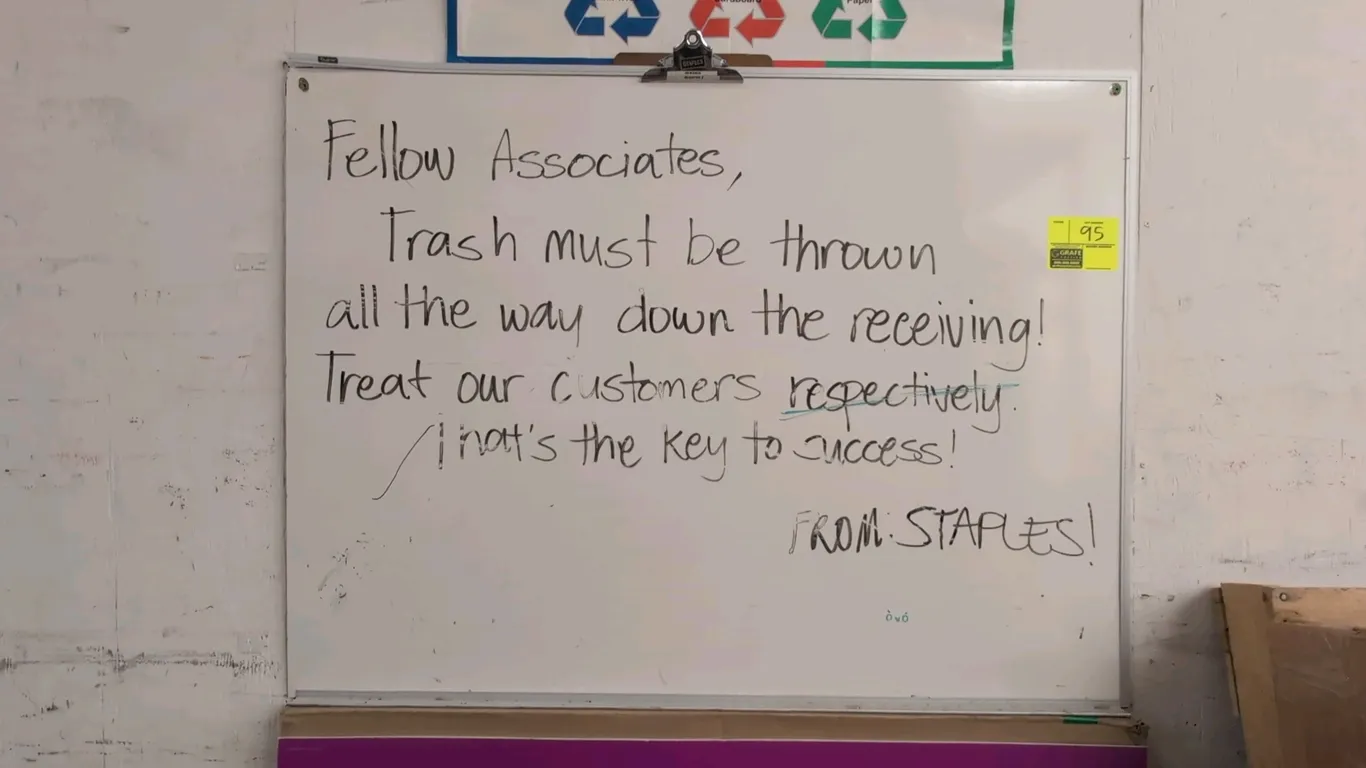 Paper
Fellow Associates,
Trash must be thrown
95
GRAFE
all the way down the receiving!
Treat our customers respectively.
That's the key to success!
FROM: STAPLES!
òwó